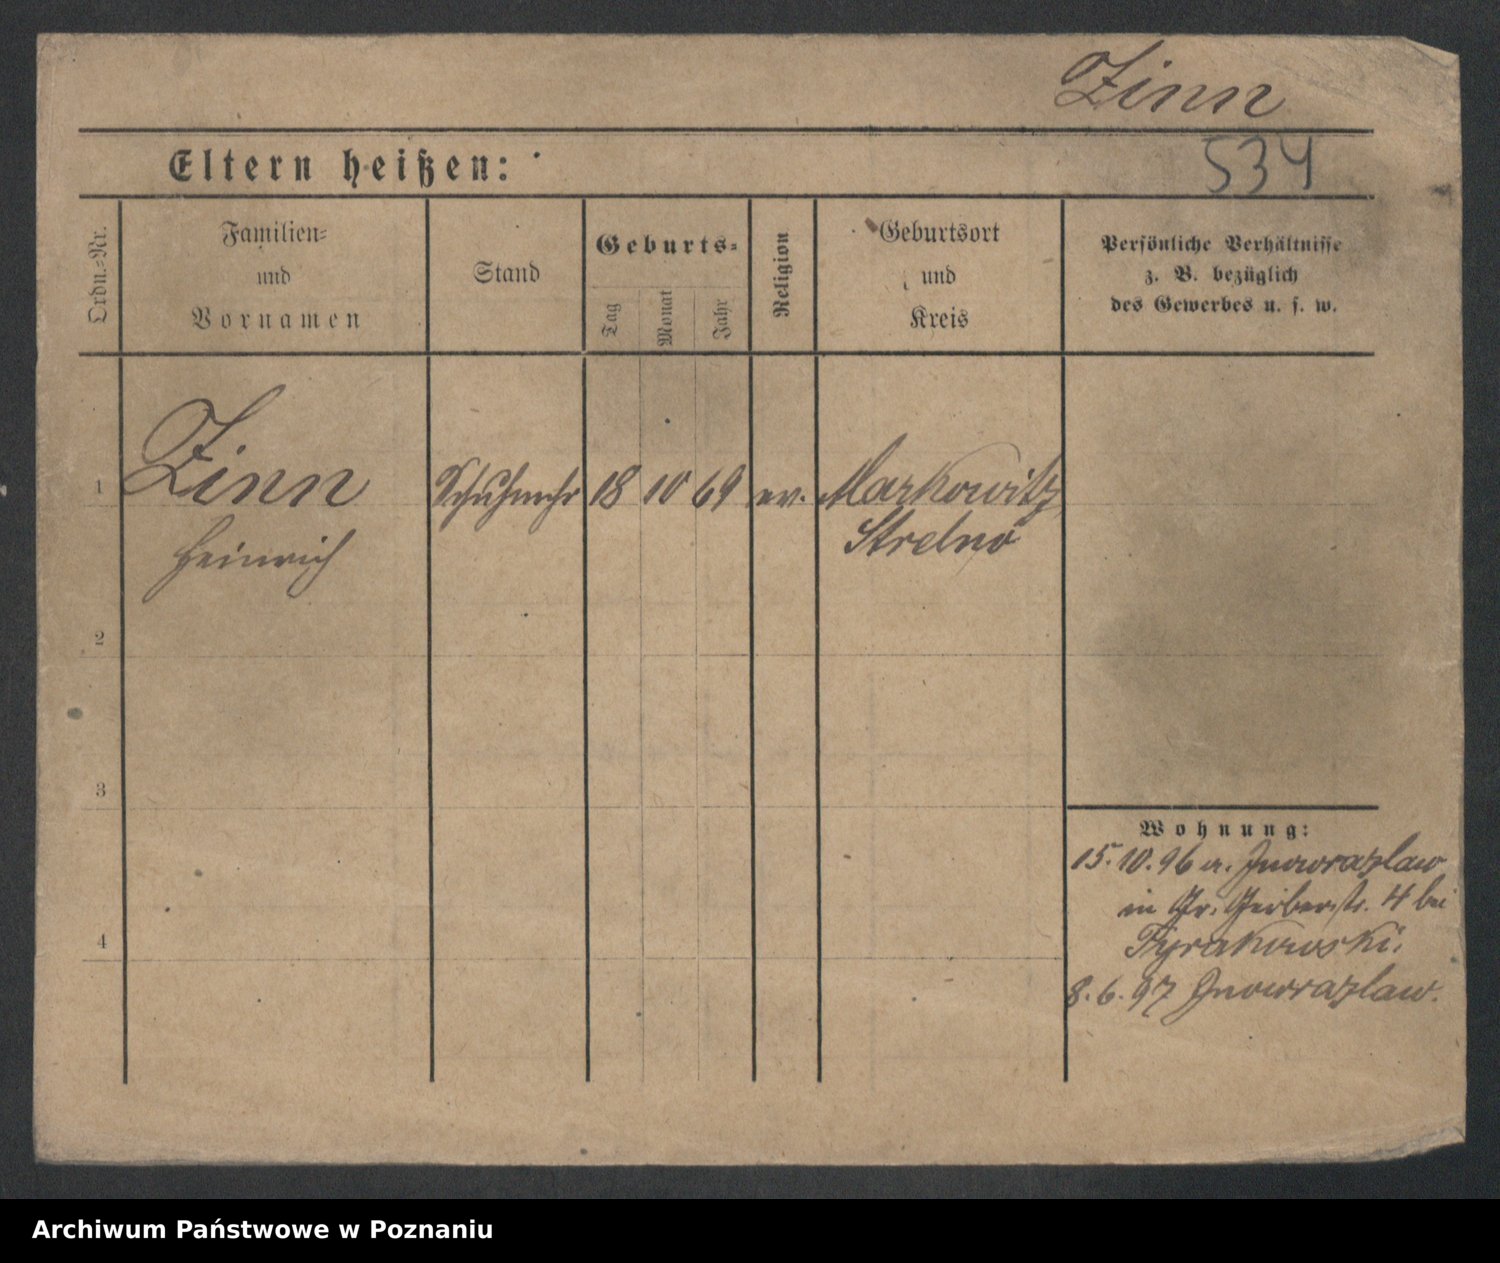 Zinn
Eltern heißen:
534
Ordn.-Nr.
Familien-
und
Vornamen
Stand
Geburts-
Tag
Monat
Jahr
Religion
Geburtsort
und
Kreis
Persönliche Verhältnisse
z. B. bezüglich
des Gewerbes u. s. w.
1
Zinn
Heinrich
Schuhmchr
18
10
69
ev.
Markowitz
Strelno
2
3
4
Wohnung:
15.10.96 a. Inowrazlaw
in Gr. Gerberstr. 4 bei
Tyrakowski.
8.6.97 Inowrazlaw.
Archiwum Państwowe w Poznaniu